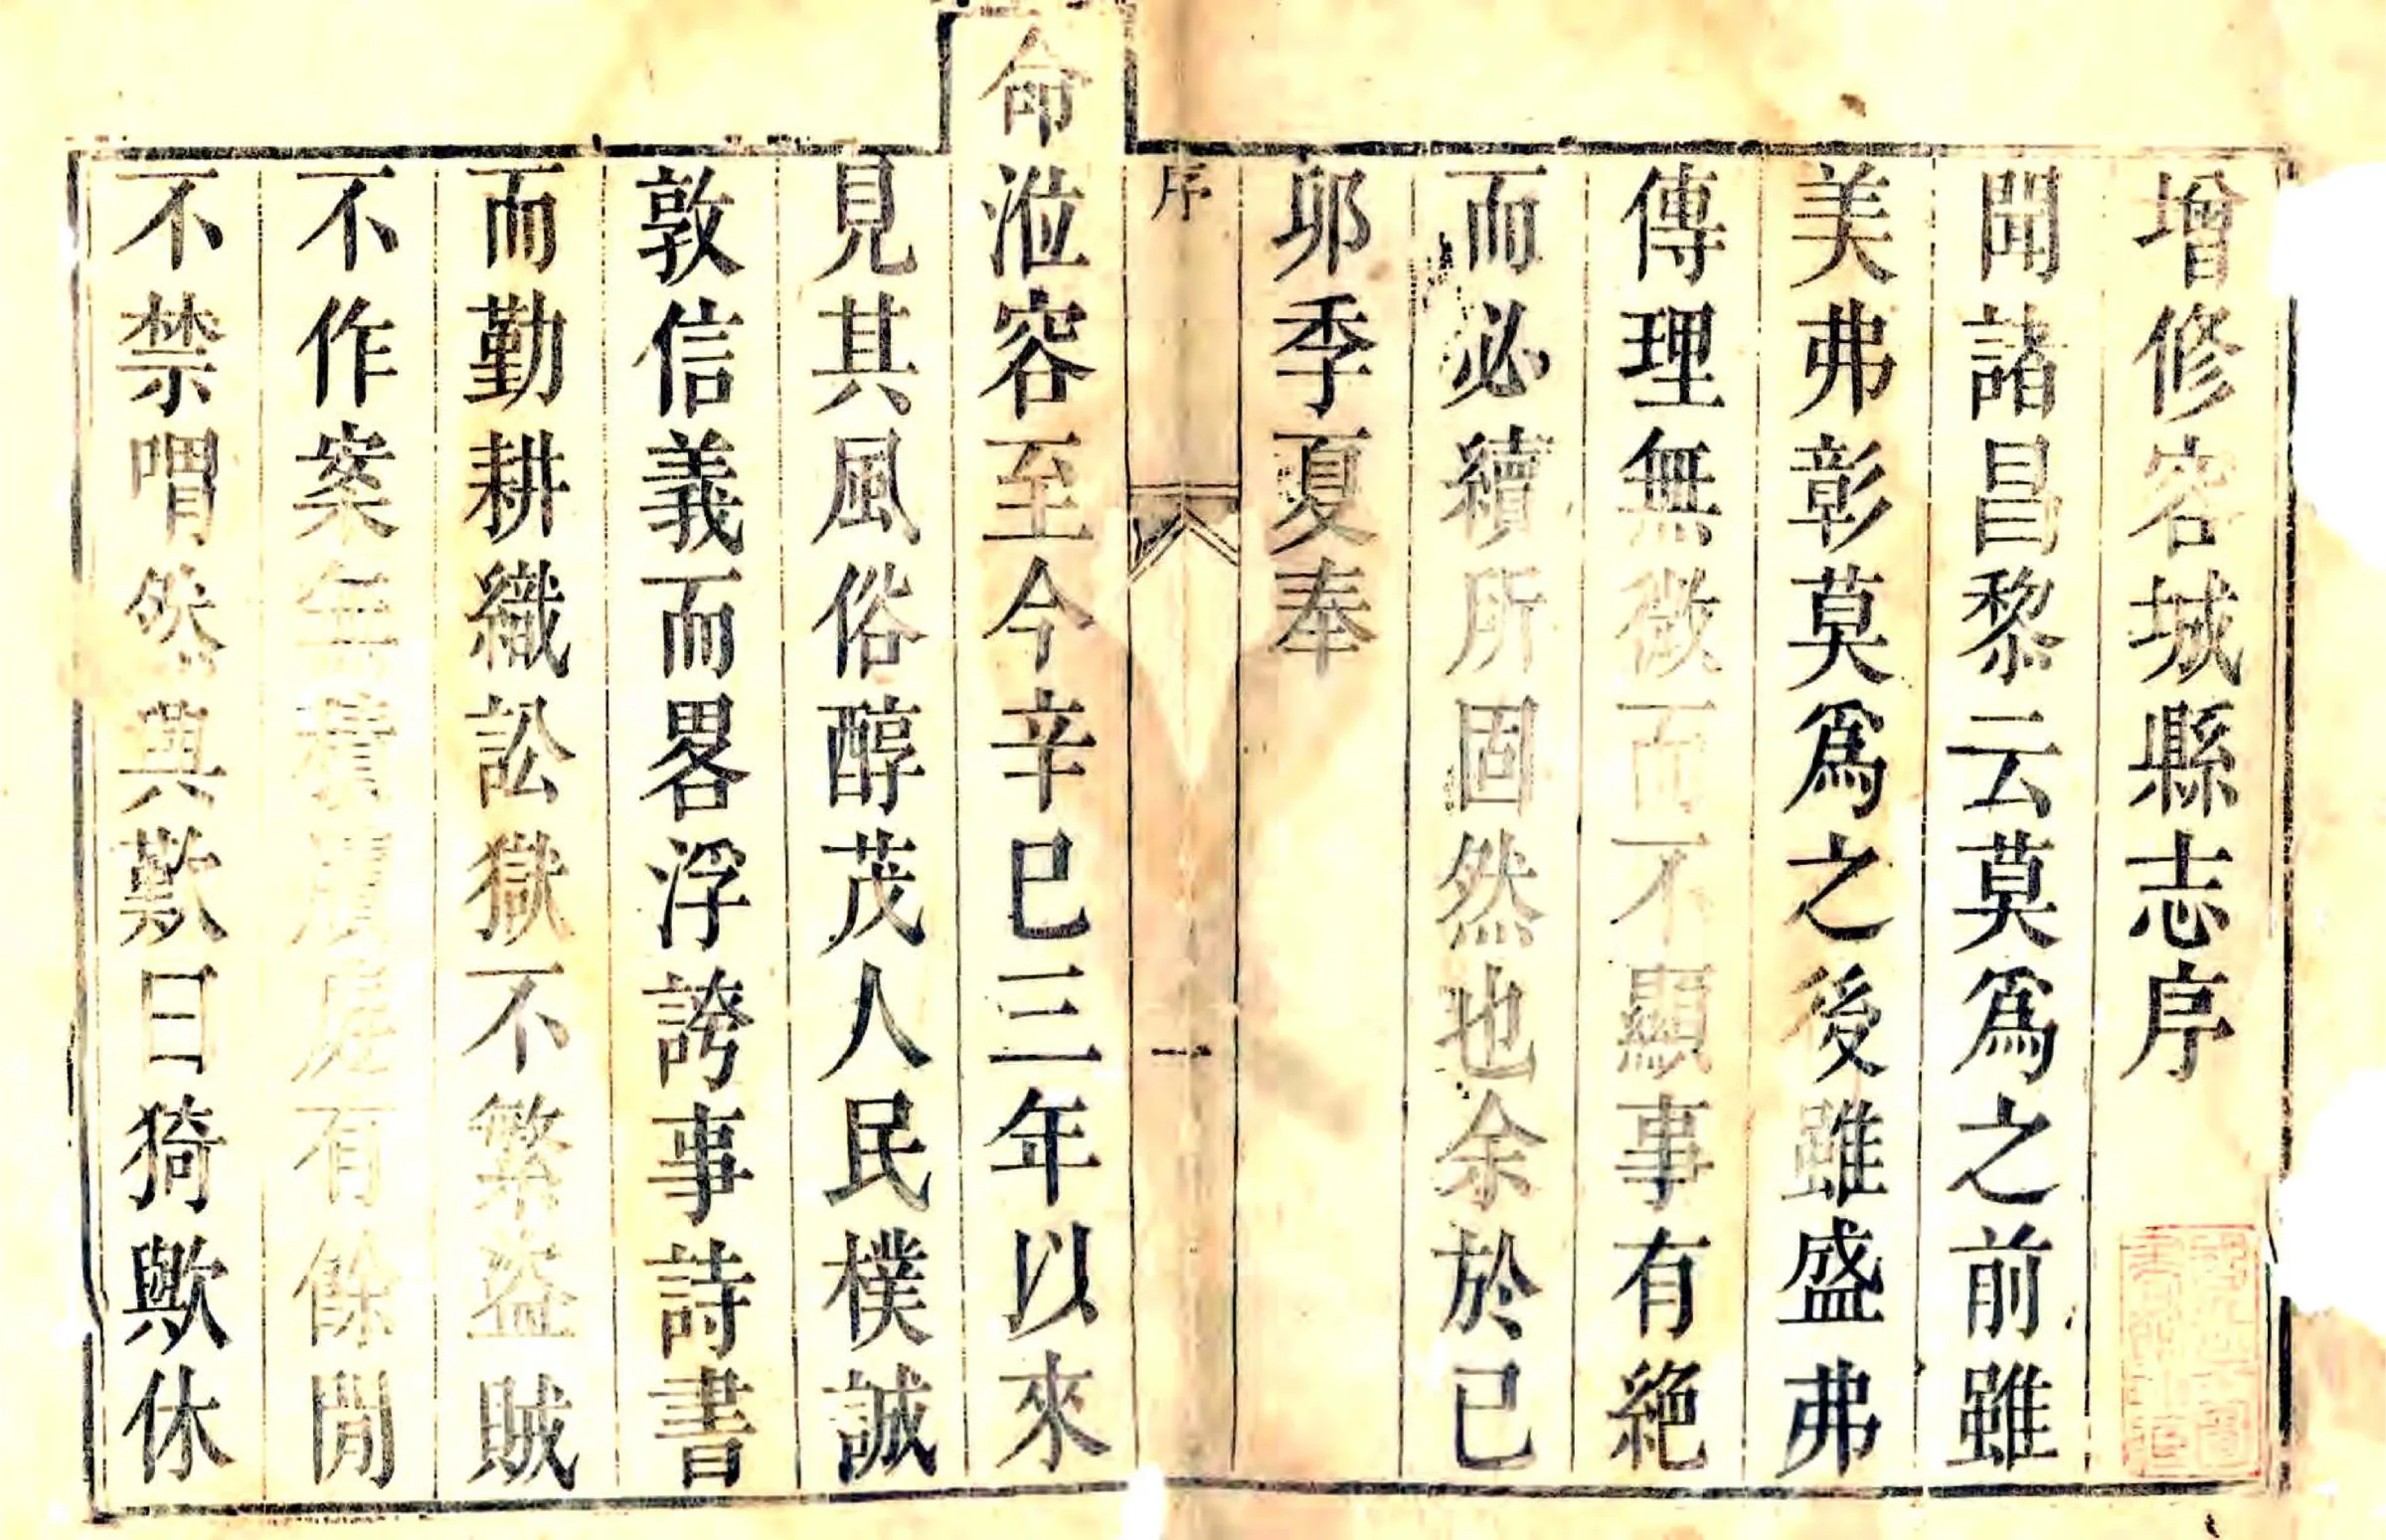 增修容城縣志序
聞諸昌黎云莫爲之前雖
美弗彰莫爲之後雖盛弗
傳理無微而不顯事有絕
而必續所固然也余於已
夘季夏奉
序
一
命涖容至今辛巳三年以來
見其風俗醇茂人民樸誠
敦信義而畧浮誇事詩書
而勤耕織訟獄不繁盜賊
不作案無積牘庭有餘閒
不禁喟然興歎曰猗歟休